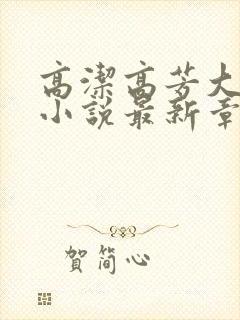 高潔高芳大
小說最新章
賀簡心